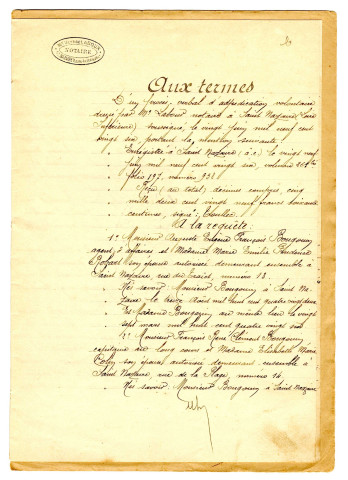 NOTAIRE
Aux termes
D'un procès verbal d'adjudication volontaire
dressé par Me Labour notaire à Saint Nazaire (Loire
Inférieure) soussigné, le vingt juin mil neuf cent
vingt six portant la mention suivante:
Enregistré à Saint Nazaire (a.c.) le vingt neuf
juin mil neuf cent vingt six, volume
folio 197, numéro 931
Reçu (au total) décimes compris, cinq
mille deux cent vingt neuf francs soixante
centimes, signé:
A la requête:
1º Monsieur Auguste François Bourgouin
agent d'affaires et Madame Marie Emilie Prudence
son épouse autorisée demeurant ensemble à
Saint Nazaire, rue du numéro 13.
Nés savoir: Monsieur Bourgouin à Saint Na
zaire le treize août mil huit cent quatre vingt
Et Madame Bourgouin au même lieu le vingt
sept mars mil huit cent quatre vingt six
2º Monsieur François René Clément Bourgouin
capitaine au long cours et Madame Elisabeth Marie
son épouse autorisée demeurant ensemble à
Saint Nazaire, rue de la Plage, numéro 14
Nés savoir: Monsieur Bourgouin à Saint Nazaire